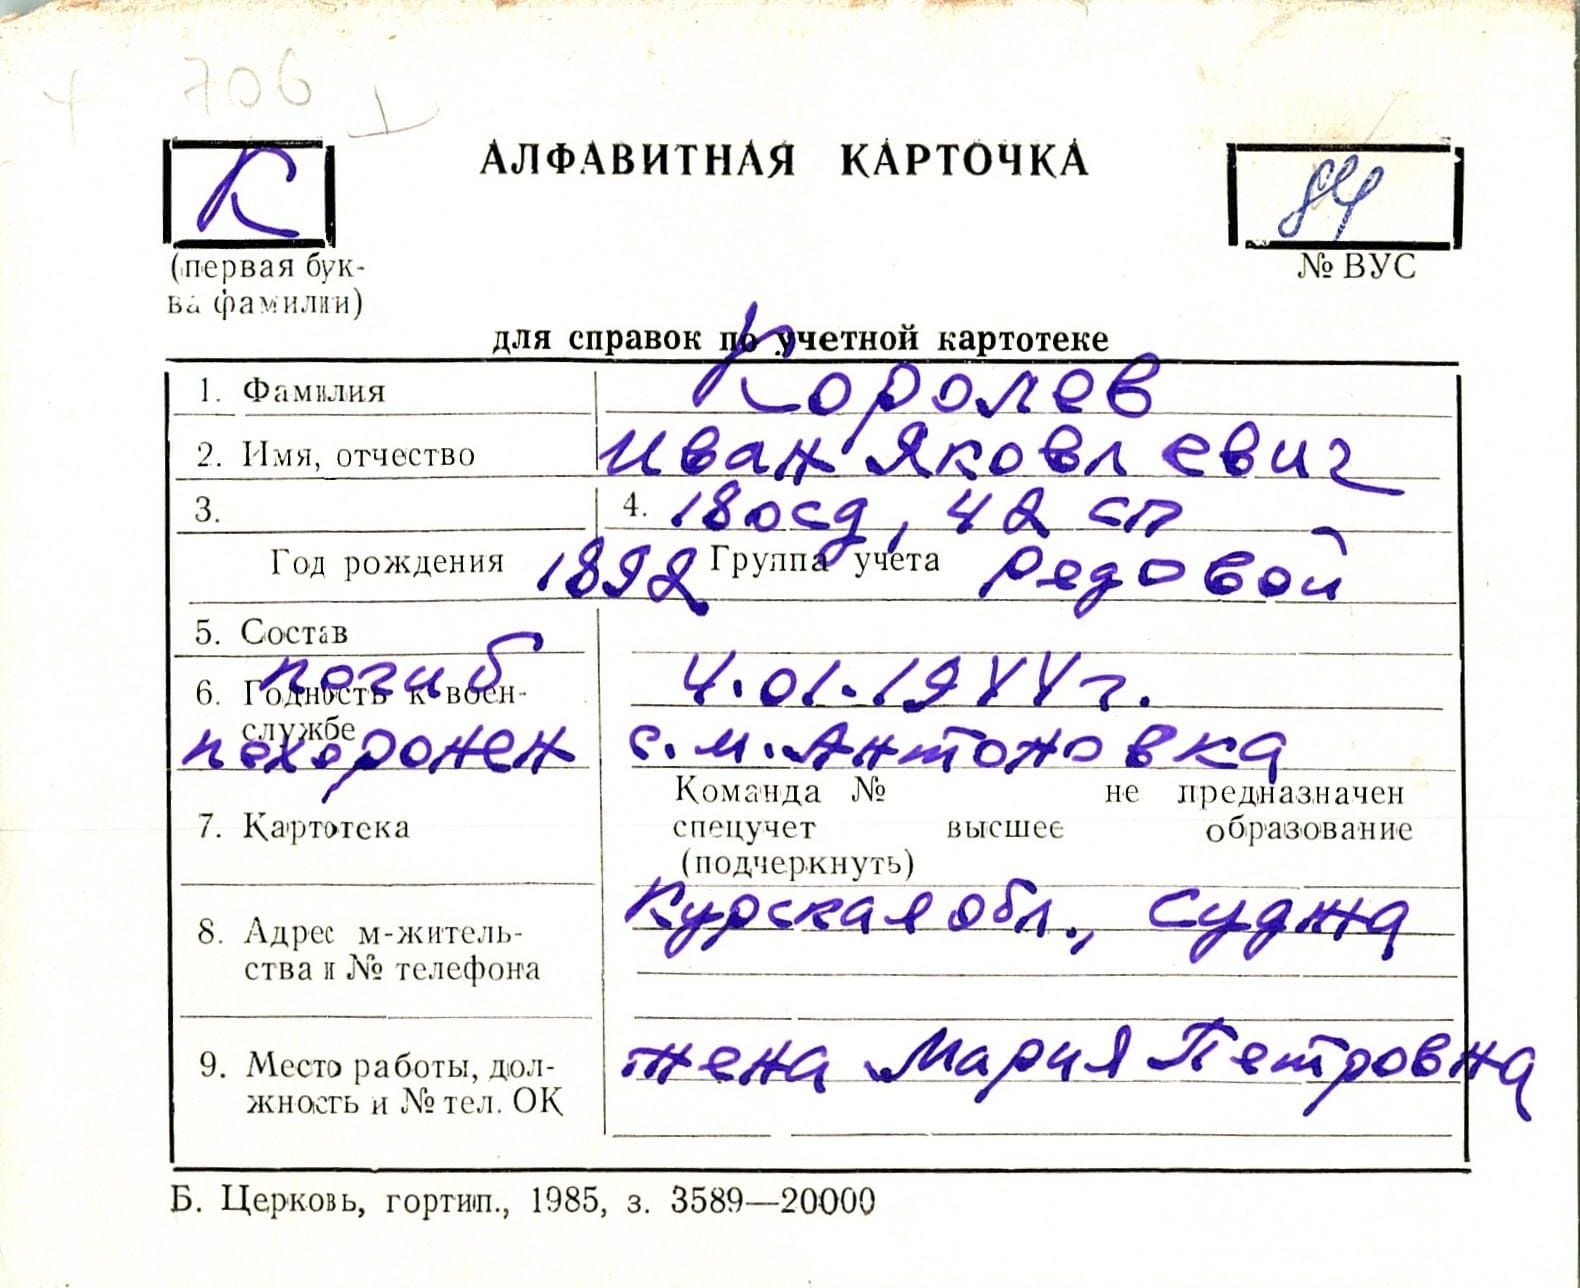 706
К
АЛФАВИТНАЯ КАРТОЧКА
84
(первая бук-
ва фамилии)
№ ВУС
для справок по учетной картотеке
1. Фамилия Королев
2. Имя, отчество Иван Яковлевич
3. 4. 180сд, 42 сп
Год рождения 1892 Группа учета Рядовой
5. Состав
погиб 4.01.1944г.
6. Годность к воен-
службе
похоронен с. м. Антоновка
Команда № не предназначен
7. Картотека спецучет высшее образование
(подчеркнуть)
Курская обл., Суджа
8. Адрес м-житель-
ства и № телефона
9. Место работы, дол-
жность и № тел. ОК
жена Мария Петровна
Б. Церковь, гортип., 1985, з. 3589—20000